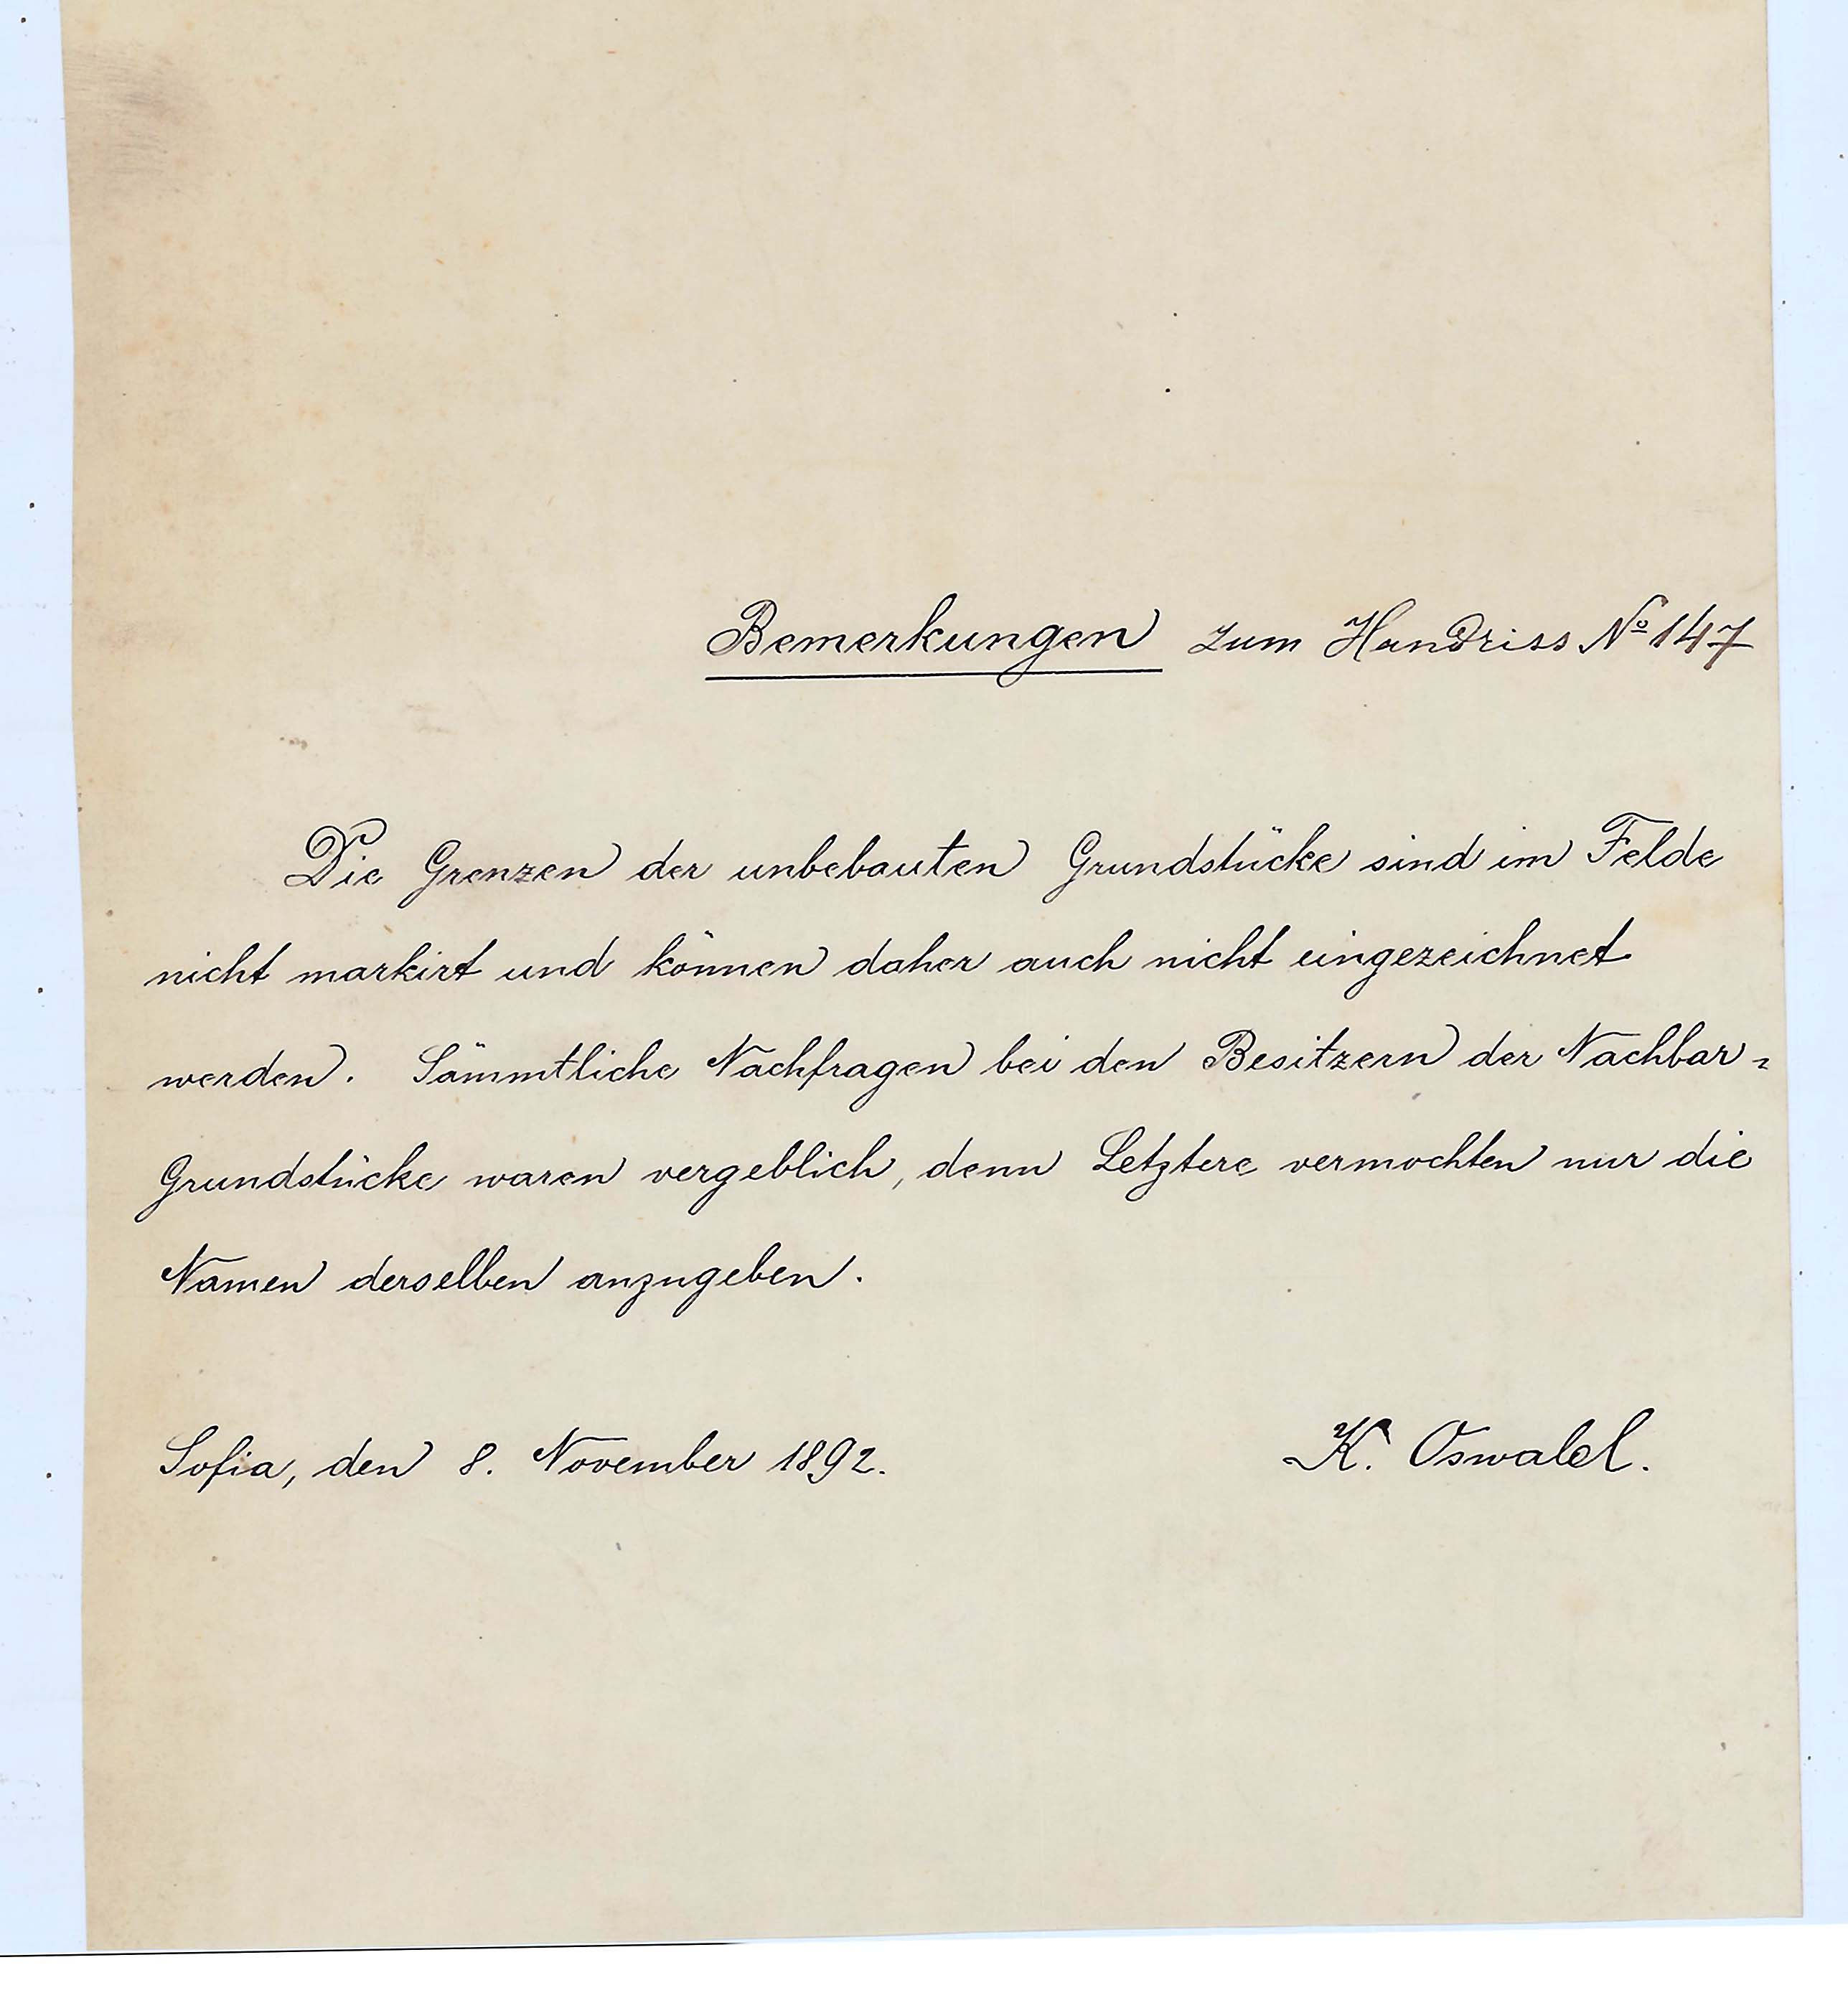 Bemerkungen zum Handriss No 147
Die Grenzen der unbebauten Grundstücke sind im Felde
nicht markirt und können daher auch nicht eingezeichnet
werden. Sämmtliche Nachfragen bei den Besitzern der Nachbar=
Grundstücke waren vergeblich, denn Letztere vermochten nur die
Namen derselben anzugeben.
Sofia, den 8. November 1892. K. Oswald.